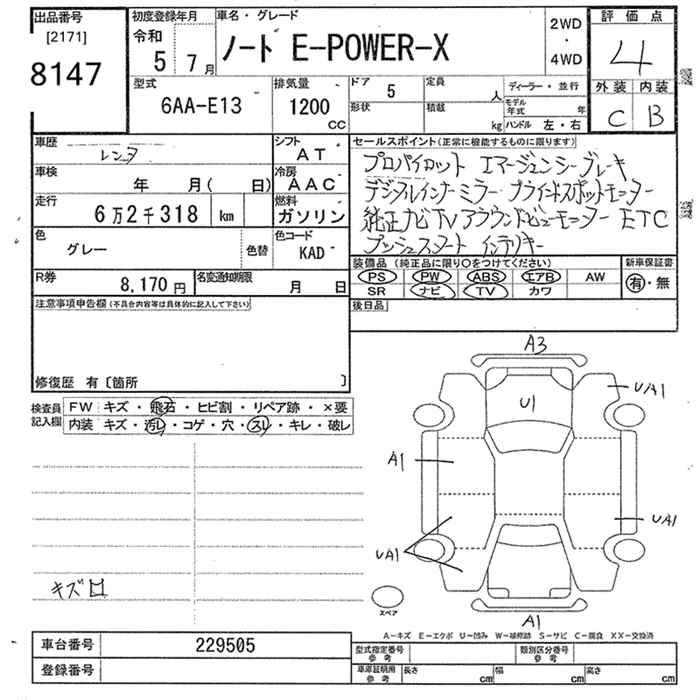 出品番号
[2171]
8147
初度登録年月
令和
5 7月
車名・グレード
ノート E-POWER-X
2WD
・
4WD
評価点
4
外装 内装
C B
型式
6AA-E13
排気量
1200
CC
ドア 5
定員 人
形状
積載 kg
ディーラー・並行
モデル年式 年
ハンドル 左・右
車歴
レンタ
シフト
AT
車検
年 月( 日)
冷房
AAC
走行
6万2千318 km
燃料
ガソリン
色
グレー
色替
色コード
KAD
R券
8,170円
名変通知期限
月 日
セールスポイント(正常に機能するものに限ります)
プロパイロット エマージェンシーブレーキ
デジタルインナーミラー ブラインドスポットモニター
純正ナビTVアラウンドビューモニター ETC
プッシュスタート インテリキー
装備品(純正品に限り○をつけてください)
PS PW ABS エアB AW
SR ナビ TV カワ
新車保証書
有・無
後日品
注意事項申告欄(不具合内容等は具体的に記入して下さい)
修復歴 有〔箇所 〕
検査員記入欄
FW キズ・飛石・ヒビ割・リペア跡・×要
内装 キズ・汚レ・コゲ・穴・スレ・キレ・破レ
キズ
A3
U1
UA1
A1
UA1
UA1
A1
スペア
A-キズ E-エクボ U-凹み W-補修跡 S-サビ C-腐食 XX-交換済
車台番号 229505
登録番号
型式指定番号
参考
類別区分番号
参考
車庫証明用
参考
長さ cm
幅 cm
高さ cm